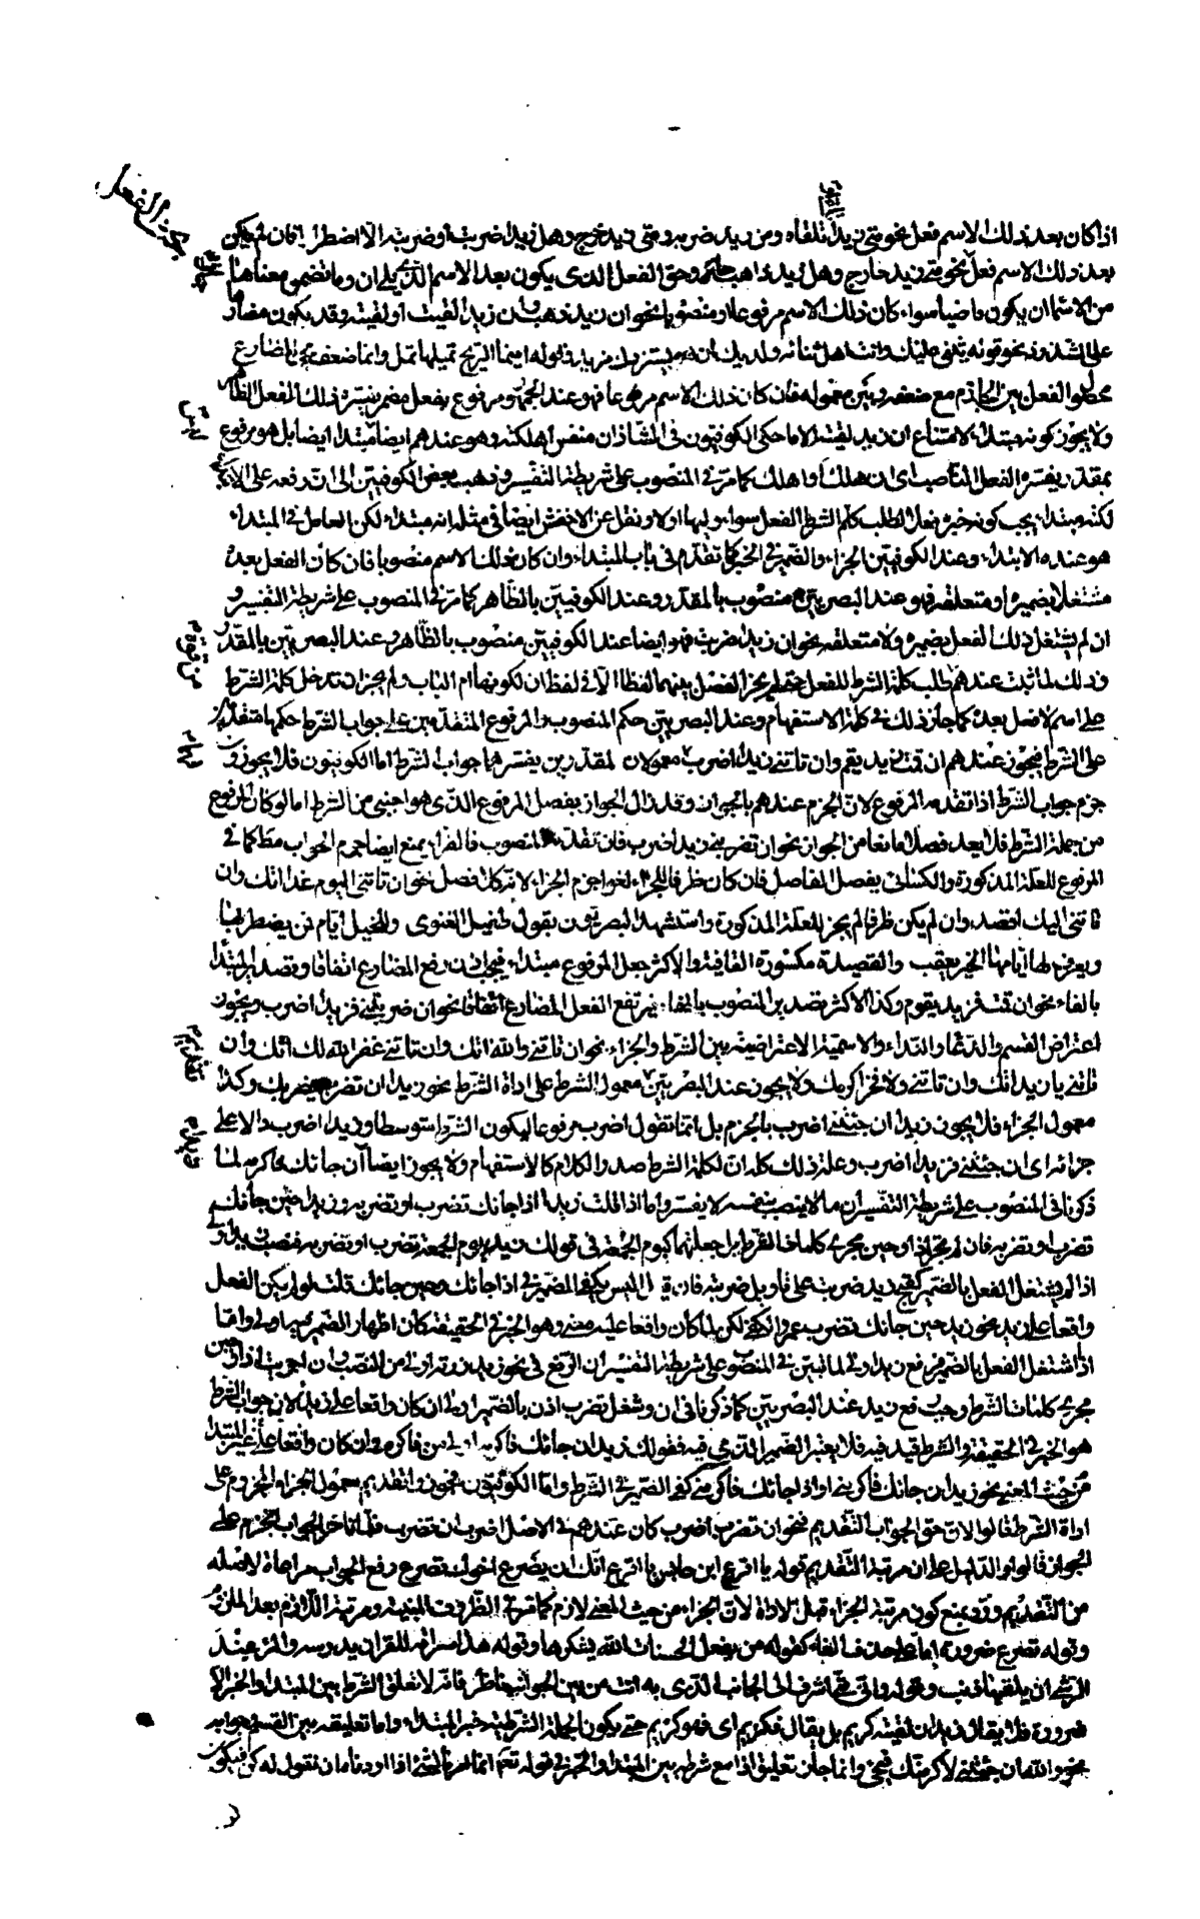 بحث الفعل
اذا كان بعد ذلك الاسم فعل نحو متى زيدا تلقاه ومن زيد ضربه ومتى زيد خرج وهل زيدا ضربت او ضربته الا اضطرارا فان لم يكن
بعد ذلك الاسم فعل نحو متى زيد خارج وهل زيد ذاهب جاز وحق الفعل الذى يكون بعد الاسم الذى يلى ان وما تضمن معناها
من الاسماء ان يكون ماضيا سواء كان ذلك الاسم مرفوعا او منصوبا نحو ان زيد ذهب وان زيدا لقيت او لقيته وقد يكون مضارعا
على الشذوذ نحو قوله يثنى عليك وانت اهل ثنائه ولديك ان هو يستزدك مزيد وقوله اينما الريح تميلها تمل وانما ضعف مجئ المضارع
لحصول الفصل بين الجازم مع ضعفه وبين معموله فان كان ذلك الاسم مرفوعا فهو عند الجمهور مرفوع بفعل مضمر يفسره ذلك الفعل الظاهر
ولا يجوز كونه مبتدأ لامتناع ان زيد لقيته الا ما حكى الكوفيون فى الشاذ ان منفس اهلكته وهو عندهم ايضا مبتدأ بل هو مرفوع
بمقدر يفسره الفعل الناصب اى ان هلك او اهلك كما مر فى المنصوب على شريطة التفسير وذهب بعض الكوفيين الى ان رفعه على الابتداء
لكنه مبتدأ يجب كون خبره فعلا لطلب كلم الشرط الفعل سواء وليها اولا ونقل عن الاخفش ايضا فى مثله انه مبتدأ لكن العامل فى المبتدأ
هو عنده الابتداء وعند الكوفيين الجزاء والضمير فى الخبر كما تقدم فى باب المبتدأ وان كان ذلك الاسم منصوبا فان كان الفعل بعده
مشتغلا بضميره او متعلقه فهو عند البصريين منصوب بالمقدر وعند الكوفيين بالظاهر كما مر فى المنصوب على شريطة التفسير و
ان لم يشتغل ذلك الفعل بضميره ولا متعلقه نحو ان زيدا ضربت فهو ايضا عند الكوفيين منصوب بالظاهر وعند البصريين بالمقدر
وذلك لما ثبت عندهم طلب كلمة الشرط للفعل حتى لم يجز الفصل بينهما لفظا الا فى لفظ ان لكونها ام الباب ولم يجز ان تدخل كلمة الشرط
على اسم لا فعل بعده كما جاز ذلك فى كلمة الاستفهام وعند البصريين حكم المنصوب والمرفوع المتقدمين على جواب الشرط حكمهما متقدمين
على الشرط فيجوز عندهم ان قمت زيد يقم وان تاتنى زيدا اضرب معمولان لمقدرين يفسرهما جواب الشرط اما الكوفيون فلا يجوزون
جزم جواب الشرط اذا تقدمه المرفوع لان الجزم عندهم بالجوار وقد زال الجوار بفصل المرفوع الذى هو اجنبى من الشرط اما لو كان المرفوع
من جملة الشرط فلا يعد فصلا مانعا من الجوار نحو ان تضربنى زيد اضرب فان تقدمه المنصوب فالفراء يمنع ايضا جزم الجواب مطلقا كما فى
المرفوع للعلة المذكورة والكسائى يفصل الفاصل فان كان ظرفا للجزاء لغوا جزم الجزاء لانه كلا فصل نحو ان تاتنى اليوم غدا اتك وان
تاتنى اليك اقصد وان لم يكن ظرفا لم يجز للعلة المذكورة واستشهد البصريون بقول طفيل الغنوى وللخيل ايام فمن يصطبر لها
ويعرف لها ايامها الخير يعقب والقصيدة مكسورة القافية والاكثر جعل المرفوع مبتدأ فيجب اذن رفع المضارع اتفاقا وتصدير المبتدأ
بالفاء نحو ان قمت فزيد يقوم وكذا الاكثر تصدير المنصوب بالفاء فيرتفع الفعل المضارع اتفاقا نحو ان ضربتنى فزيدا اضرب ويجوز
اعتراض القسم والدعاء والنداء والاسمية الاعتراضية بين الشرط والجزاء نحو ان تاتنى والله اتك وان تاتنى غفر الله لك اتك وان
تاتنى يا زيد اتك وان تاتنى ولا فخر اكرمك ولا يجوز عند البصريين معمول الشرط على اداة الشرط نحو زيدا ان تضرب يضربك وكذا
معمول الجزاء فلا يجوز زيدا ان جئتنى اضرب بالجزم بل انما تقول اضرب مرفوعا ليكون الشرط متوسطا وزيدا اضرب دالا على
جزائه اى ان جئتنى فزيدا اضرب وعلة ذلك كله ان لكلمة الشرط صدر الكلام كالاستفهام ولا يجوز ايضا ان جائك فاكرمه لما
ذكرنا فى المنصوب على شريطة التفسير ان ما لا ينصب بنفسه لا يفسر واما اذا قلت زيدا اذا جائك تضرب او تضربه وزيدا حين جائك
تضرب او تضربه فان لم تجر اذا وحين مجرى كلمات الشرط بل جعلتهما كيوم الجمعة فى قولك زيدا يوم الجمعة تضرب او تضربه فنصب زيد اولى
اذا لم يشتغل الفعل بالضمير لقبح زيد ضربت على تاويل ضربته فان قيل اليس يكفى الضمير فى اذا جائك وحين جائك قلت لو لم يكن الفعل
واقعا على زيد نحو زيد حين جائك تضرب عمرا لكفى لكن لما كان واقعا عليه معنى وهو الخبر فى الحقيقة كان اظهار الضمير فيه اولى واما
اذا اشتغل الفعل بالضمير فرفع زيد اولى لما تبين فى المنصوب على شريطة التفسير ان الرفع فى نحو زيد زرته اولى من النصب وان اجريت اذا وحين
مجرى كلمات الشرط وجب رفع زيد عند البصريين كما ذكرنا فى ان وشغل تضرب اذن بالضمير اولى ان كان واقعا على زيد لان جواب الشرط
هو الخبر فى الحقيقة والشرط قيد فيه فلا يعتبر الضمير الذى فى قيده فقولك زيد ان جائك فاكرمه اولى من فاكرم وان كان واقعا على غير المبتدأ
من حيث المعنى نحو زيد ان جائك فاكرمنى او اذا جائك فاكرمنى كفى الضمير فى الشرط واما الكوفيون فيجوزون تقديم معمول الجزاء المجزوم على
اداة الشرط قالوا لان حق الجواب التقديم فنحو ان تضرب اضرب كان عندهم فى الاصل اضرب ان تضرب فلما تاخر الجواب انجزم على
الجوار قالوا والدليل على ان مرتبته التقديم قوله يا اقرع ابن حابس يا اقرع انك ان يصرع اخوك تصرع رفع الجواب مراعاة لاصله
من التقديم ورد بمنع كون مرتبة الجزاء قبل الاداة لان الجزاء من حيث المعنى لازم كما مر فى الظروف المبنية ومرتبة اللازم بعد الملزوم
وقوله تصرع ضرورة اما على حذف الفاء كقوله من يفعل الحسنات الله يشكرها وقوله هذا سراقة للقران يدرسه والمرء عند
الرشى ان يلقها ذئب وقوله وانى متى اشرف الى الجانب الذى به انت من بين الجوانب ناظر فانه لا تعلق الشرط بين المبتدأ والخبر الا
ضرورة فلا يقال زيد ان لقيته كريم بل يقال فكريم اى فهو كريم حتى يكون الجملة الشرطية خبر المبتدأ واما تعليقه بين القسم وجوابه
نحو والله ان جئتنى لاكرمنك فيجئ وانما جاز تعليق اذا مع شرطه بين المبتدأ والخبر فى قوله تعم انما امرنا لشئ اذا اردناه ان نقول له كن فيكون